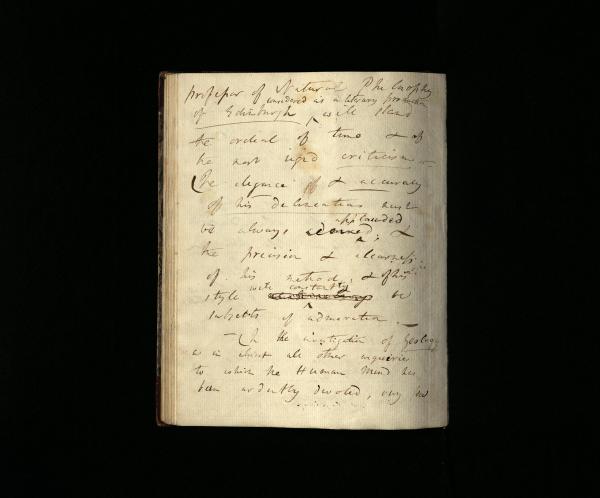 professor of Natural Philosophy
considered as a literary production
of Edinburgh ^ will stand
the ordeal of time & of
the most rigid criticism —
(The elegance of & accuracy
of his delineations must
applauded
be always adored ; &
^
the precision & clearness
of his method, & of his
will constantly
style be
^
subjects of admiration. —
— (In the investigation of Geology
as in almost all other enquiries
to which the Human Mind has
been ardently devoted, very few